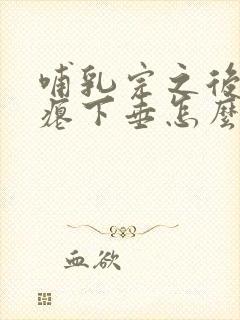 哺乳完之後
瘪下垂怎麼
血欲